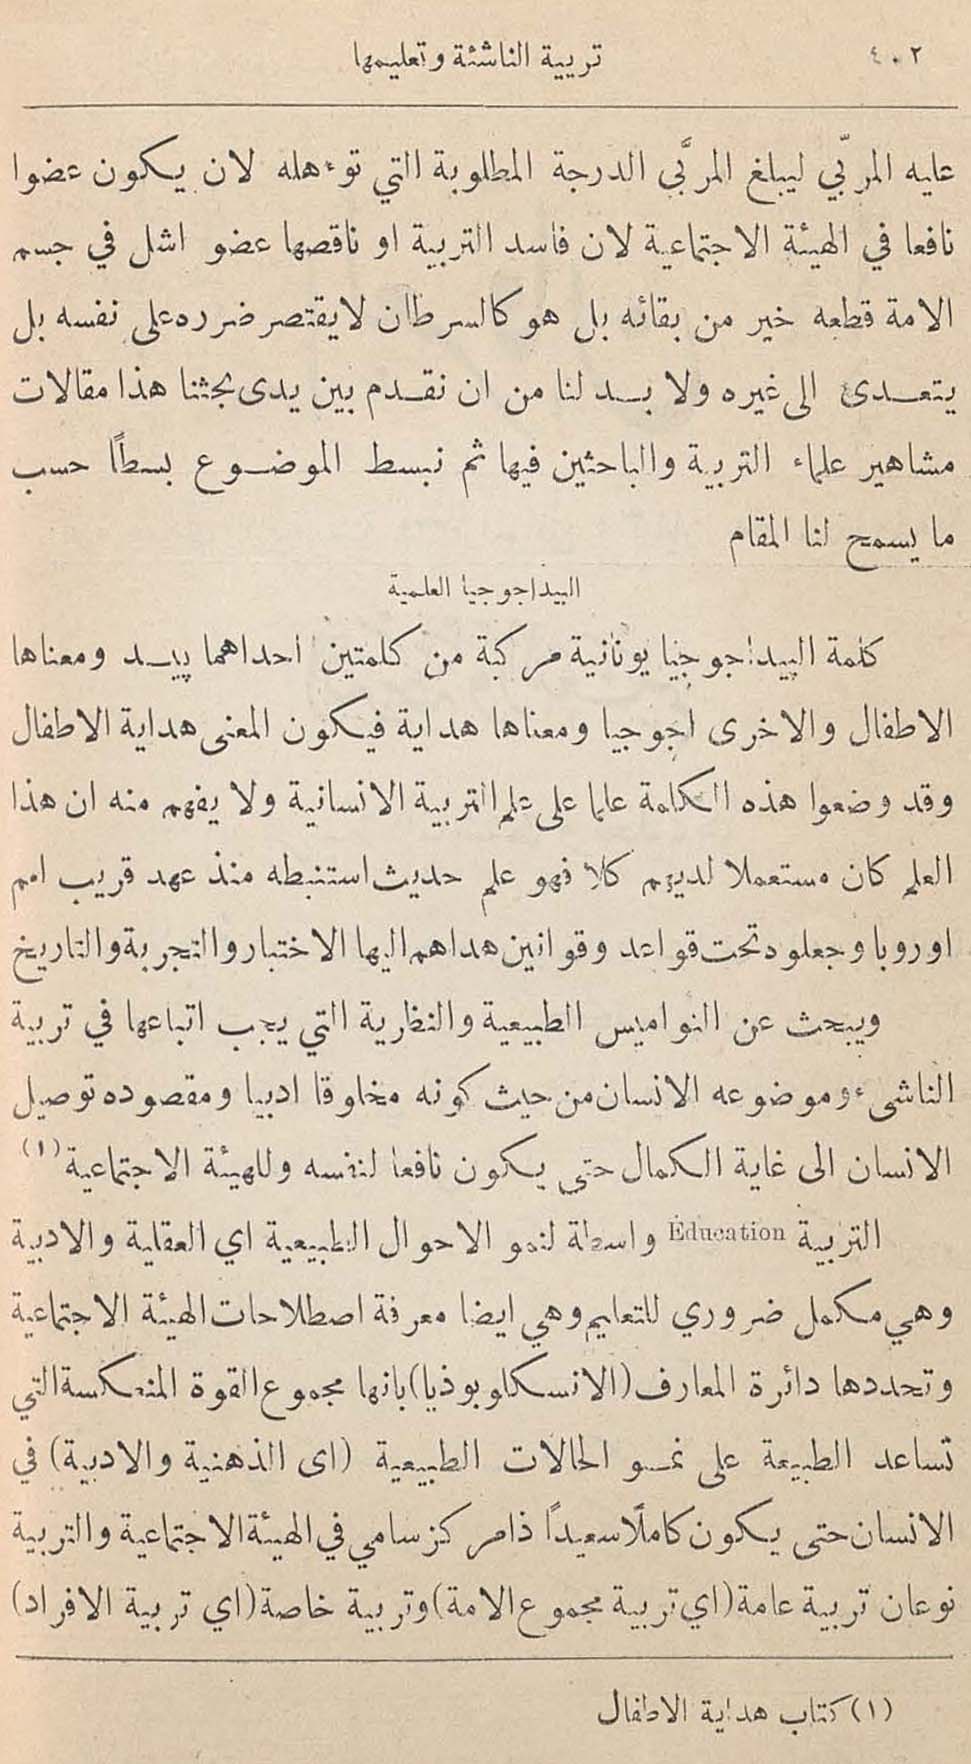 ٤٠٢ تربية الناشئة وتعليمها
عليه المربّي ليبلغ المربَّي الدرجة المطلوبة التي توءهله لان يكون عضوا
نافعا في الهيئة الاجتماعية لان فاسد التربية او ناقصها عضو اشل في جسم
الامة قطعه خير من بقائه بل هو كالسرطان لايقتصر ضرره على نفسه بل
يتعدى الى غيره ولا بد لنا من ان نقدم بين يدى بحثنا هذا مقالات
مشاهير علماء التربية والباحثين فيها ثم نبسط الموضوع بسطًا حسب
ما يسمح لنا المقام
البيداجوجيا العلمية
كلمة البيداجوجيا يونانية مركبة من كلمتين احداهما پيد ومعناها
الاطفال والاخرى اجوجيا ومعناها هداية فيكون المعنى هداية الاطفال
وقد وضعوا هذه الكلمة علما على علم التربية الانسانية ولا يفهم منه ان هذا
العلم كان مستعملا لديهم كلا فهو علم حديث استنبطه منذ عهد قريب امم
اوروبا وجعلوه تحت قواعد وقوانين هداهم اليها الاختبار والتجربة والتاريخ
ويبحث عن النواميس الطبيعية والنظرية التي يجب اتباعها في تربية
الناشىء وموضوعه الانسان من حيث كونه مخلوقا ادبيا ومقصوده توصيل
الانسان الى غاية الكمال حتى يكون نافعا لنفسه وللهيئة الاجتماعية (١)
التربية Éducation واسطة لنمو الاحوال الطبيعية اي العقلية والادبية
وهي مكمل ضروري للتعليم وهي ايضا معرفة اصطلاحات الهيئة الاجتماعية
وتحددها دائرة المعارف (الانسكلوبوذيا) بانها مجموع القوة المنعكسة التي
تساعد الطبيعة على نمو الحالات الطبيعية (اى الذهنية والادبية) في
الانسان حتى يكون كاملًا سعيدًا ذا مركز سامي في الهيئة الاجتماعية والتربية
نوعان تربية عامة (اي تربية مجموع الامة) وتربية خاصة (اي تربية الافراد)
(١) كتاب هداية الاطفال